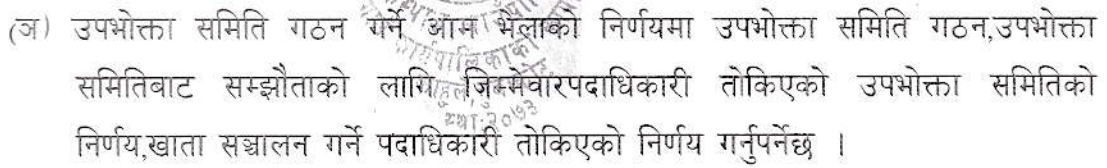 (ञ) उपभोक्ता समिति गठन गर्ने आम भेलाको निर्णयमा उपभोक्ता समिति गठन,उपभोक्ता
समितिबाट सम्झौताको लागि जिम्मेवारपदाधिकारी तोकिएको उपभोक्ता समितिको
निर्णय,खाता सञ्चालन गर्ने पदाधिकारी तोकिएको निर्णय गर्नुपर्नेछ ।